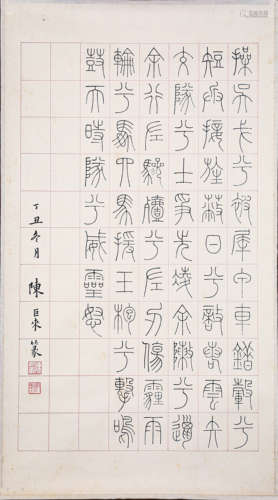 操吳戈兮被犀甲車錯轂兮
短兵接旌蔽日兮敵若雲矢
交隊兮士爭先凌余陣兮躐
余行左驂殪兮右刃傷霾兩
輪兮縶四馬援玉枹兮擊鳴
鼓天時隊兮威靈怒
丁丑冬月 陳巨來篆